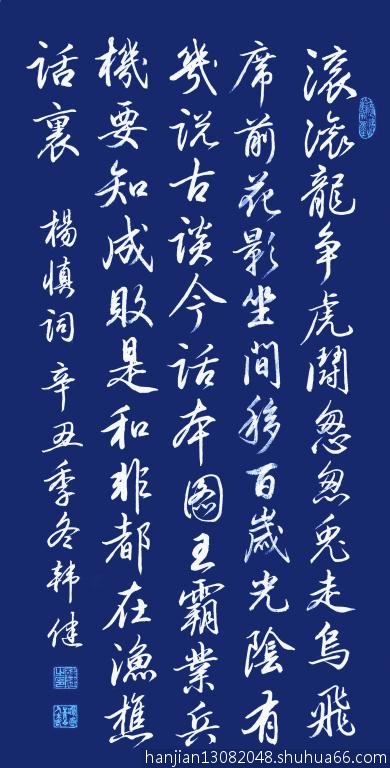 滚滚龍争虎鬪怱怱兔走烏飛
席前花影坐間移百歲光陰有
幾説古談今話本圖王霸業兵
機要知成敗是和非都在漁樵
話裏 楊慎詞 辛丑季冬韩健
hanjian13082048.shuhua66.com